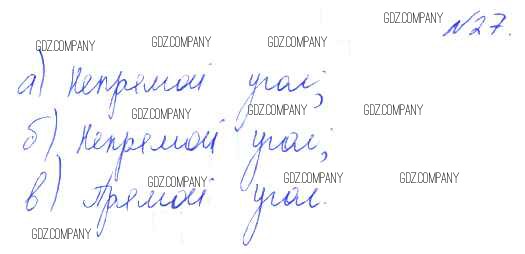 GDZ.COMPANY №27.
GDZ.COMPANY GDZ.COMPANY GDZ.COMPANY
а) Непрямой угол;
GDZ.COMPANY GDZ.COMPANY GDZ.COMPANY
б) Непрямой угол;
GDZ.COMPANY GDZ.COMPANY GDZ.COMPANY
в) Прямой угол.
GDZ.COMPANY